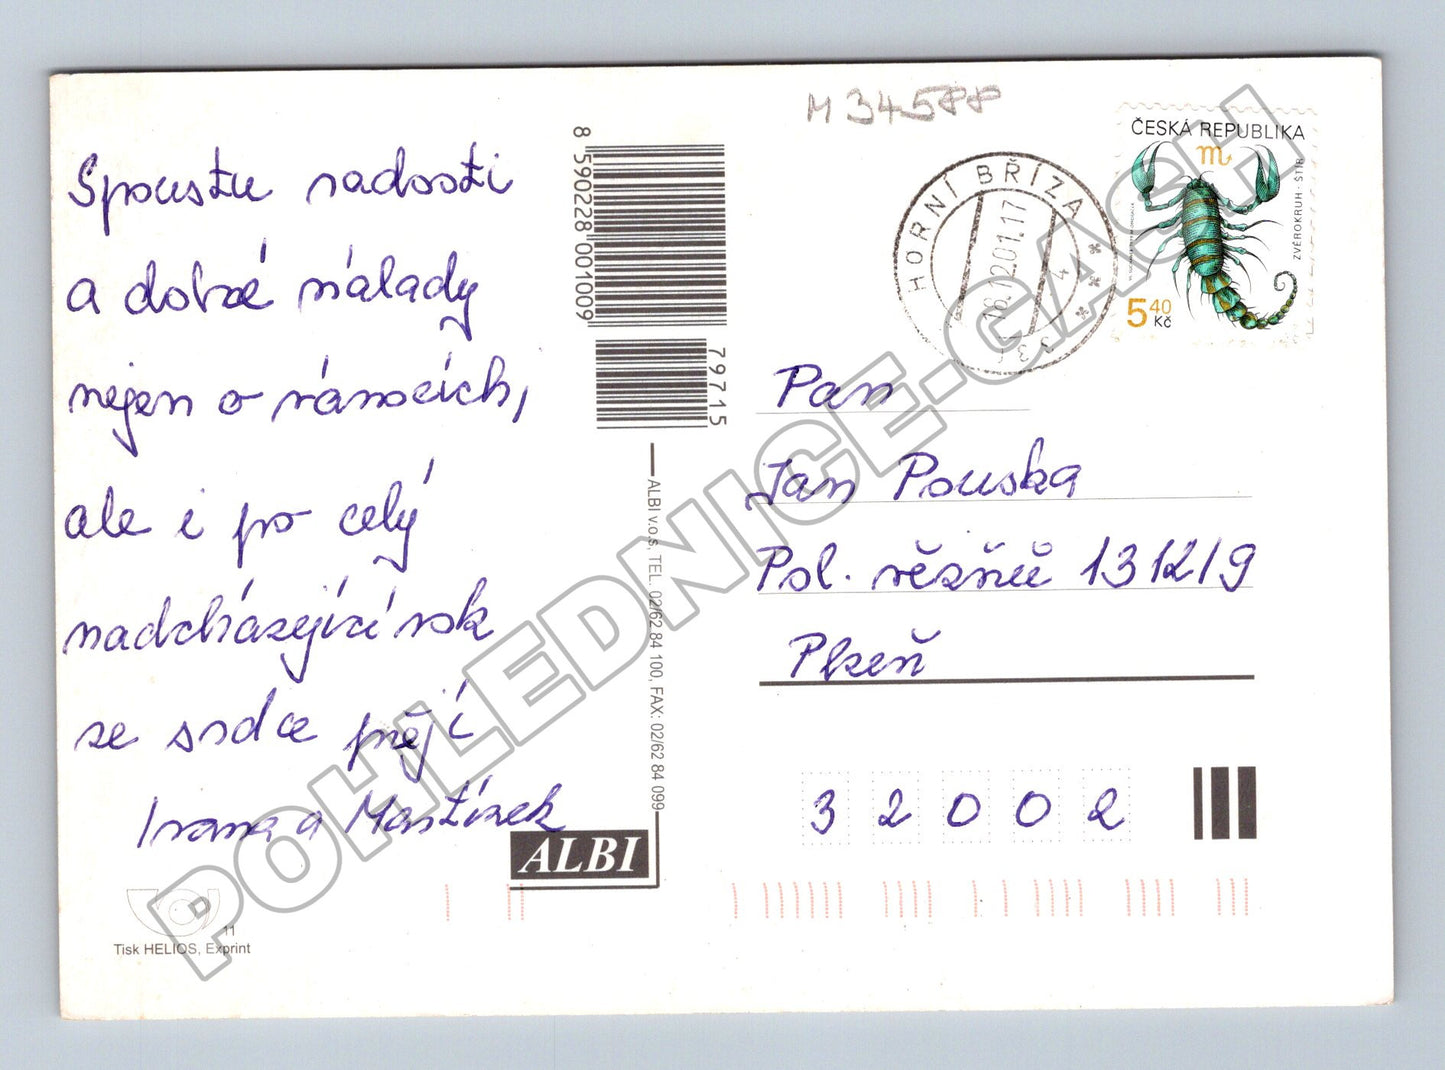 M 34588
Spoustu radosti
a dobré nálady
nejen o vánocích,
ale i po celý
nadcházející rok
ze srdce přejí
Ivana a Martínek
8 590228 001009
79715
ALBI v.o.s, TEL. 02/62 84 100, FAX: 02/62 84 099
ALBI
11
Tisk HELIOS, Exprint
HORNÍ BŘÍZA
ČESKÁ REPUBLIKA
ZVĚROKRUH - ŠTÍR
5 40
Kč
Pan
Jan Pouska
Pol. vězňů 1312/9
Plzeň
32002
POHLEDNICE-GASH